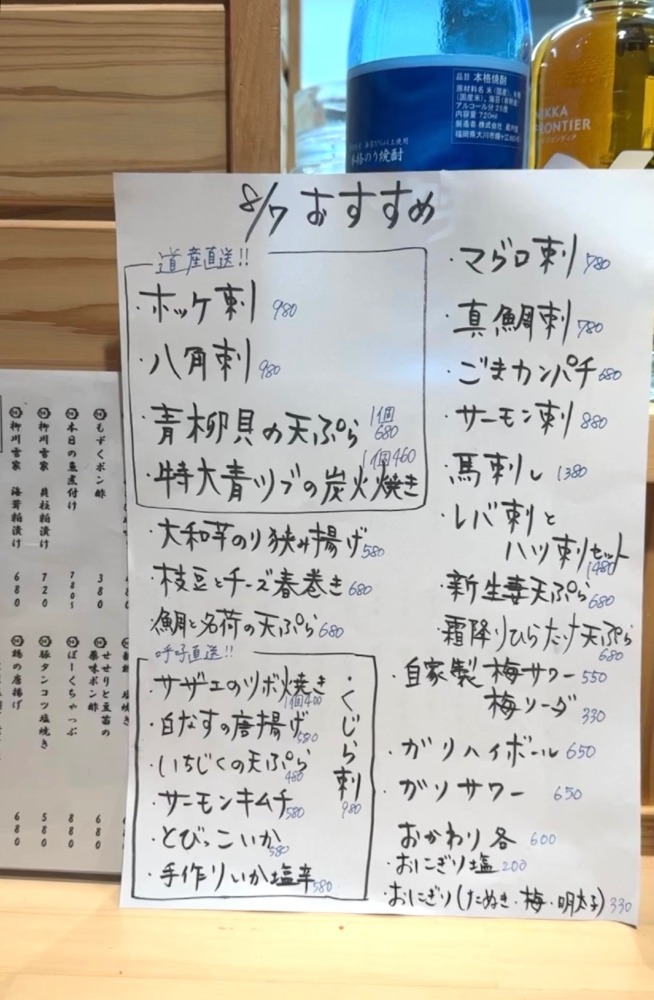 品目 本格焼酎
内容量 720ml
本格のり焼酎
FRONTIER
8/7 おすすめ
道産直送!!
・ホッケ刺 980
・八角刺 980
・青柳貝の天ぷら 1個 680
・特大青ツブの炭火焼き 1個460
・大和芋のり挟み揚げ 580
・枝豆とチーズ春巻き 680
・鯛と名荷の天ぷら 680
呼呼直送!!
・サザエのツボ焼き 1個400
・白なすの唐揚げ 580
・いちじくの天ぷら 480
・サーモンキムチ 580
・とびっこいか 580
・手作りいか塩辛 580
・くじら刺 980
・マグロ刺 780
・真鯛刺 780
・ごまカンパチ 680
・サーモン刺 880
・馬刺し 1380
・レバ刺と
ハツ刺セット 1480
・新生姜天ぷら 680
・霜降りひらたけ天ぷら 680
・自家製梅サワー 550
梅ソーダ 330
・ガリハイボール 650
・ガリサワー 650
おかわり各 600
・おにぎり塩 200
・おにぎり(たぬき・梅・明太子) 330
もずくポン酢 380
本日の魚煮付け 780~
柳川雪家 貝柱粕漬け 720
柳川雪家 海茸粕漬け 680
せせりと豆苗の
薬味ポン酢 680
ぽーくちゃっぷ 880
豚タンコツ塩焼き 580
鶏の唐揚げ 680